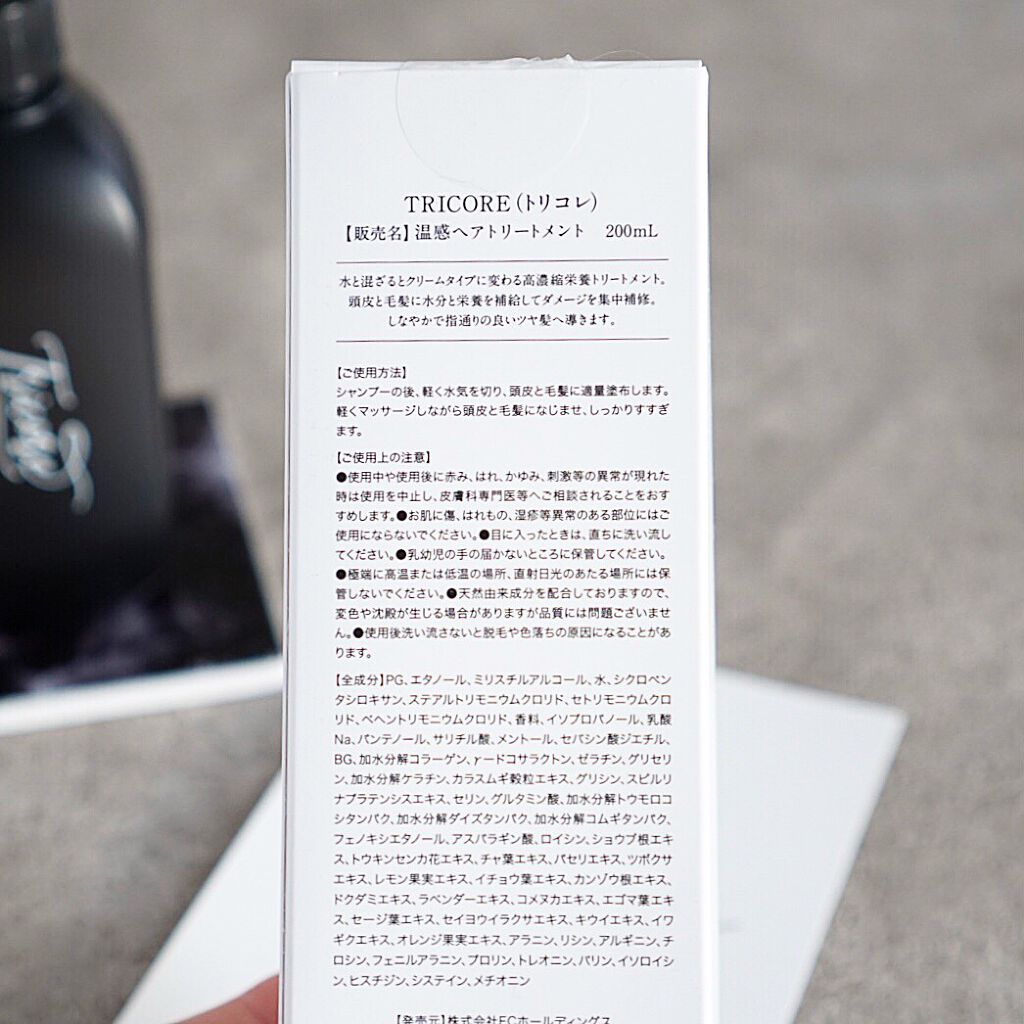 TRICORE(トリコレ)
【販売名】温感ヘアトリートメント 200mL
水と混ざるとクリームタイプに変わる高濃縮栄養トリートメント。
頭皮と毛髪に水分と栄養を補給してダメージを集中補修。
しなやかで指通りの良いツヤ髪へ導きます。
【ご使用方法】
シャンプーの後、軽く水気を切り、頭皮と毛髪に適量塗布します。
軽くマッサージしながら頭皮と毛髪になじませ、しっかりすすぎ
ます。
【ご使用上の注意】
●使用中や使用後に赤み、はれ、かゆみ、刺激等の異常が現れた
時は使用を中止し、皮膚科専門医等へご相談されることをおす
すめします。●お肌に傷、はれもの、湿疹等異常のある部位にはご
使用にならないでください。●目に入ったときは、直ちに洗い流し
てください。●乳幼児の手の届かないところに保管してください。
●極端に高温または低温の場所、直射日光のあたる場所には保
管しないでください。●天然由来成分を配合しておりますので、
変色や沈殿が生じる場合がありますが品質には問題ございませ
ん。●使用後洗い流さないと脱毛や色落ちの原因になることがあ
ります。
【全成分】PG、エタノール、ミリスチルアルコール、水、シクロペン
タシロキサン、ステアルトリモニウムクロリド、セトリモニウムクロ
リド、ベヘントリモニウムクロリド、香料、イソプロパノール、乳酸
Na、パンテノール、サリチル酸、メントール、セバシン酸ジエチル、
BG、加水分解コラーゲン、γ-ドコサラクトン、ゼラチン、グリセリ
ン、加水分解ケラチン、カラスムギ穀粒エキス、グリシン、スピルリ
ナプラテンシスエキス、セリン、グルタミン酸、加水分解トウモロコ
シタンパク、加水分解ダイズタンパク、加水分解コムギタンパク、
フェノキシエタノール、アスパラギン酸、ロイシン、ショウブ根エキ
ス、トウキンセンカ花エキス、チャ葉エキス、パセリエキス、ツボクサ
エキス、レモン果実エキス、イチョウ葉エキス、カンゾウ根エキス、
ドクダミエキス、ラベンダーエキス、コメヌカエキス、エゴマ葉エキ
ス、セージ葉エキス、セイヨウイラクサエキス、キウイエキス、イワ
ギクエキス、オレンジ果実エキス、アラニン、リシン、アルギニン、チ
ロシン、フェニルアラニン、プロリン、トレオニン、バリン、イソロイシ
ン、ヒスチジン、システイン、メチオニン
【発売元】株式会社ECホールディングス